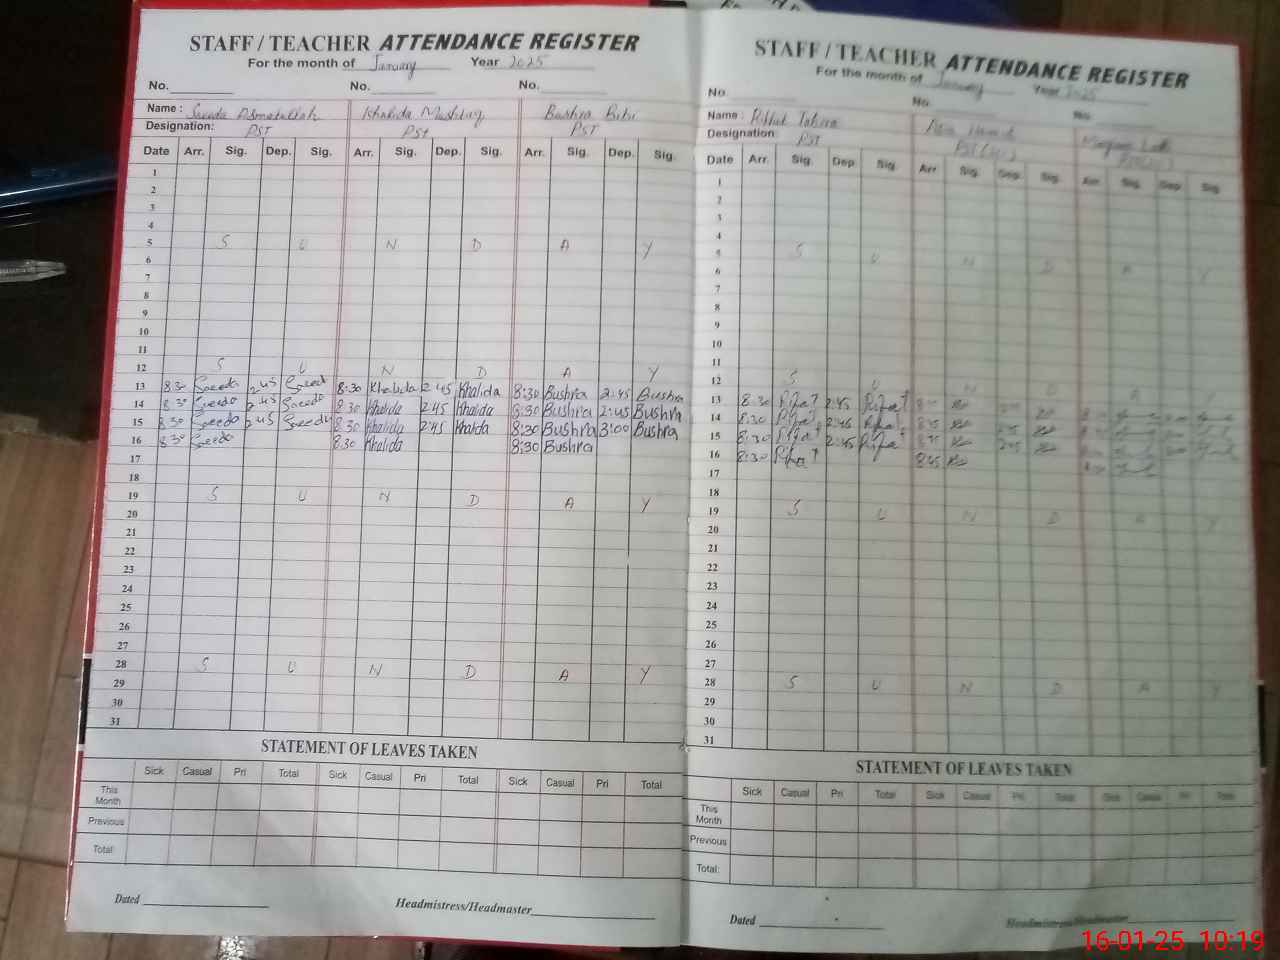 STAFF / TEACHER ATTENDANCE REGISTER
For the month of January Year 2025
No. No. No.
Name : Saeeda Asmatullah Khalida Mushtaq Bushra Bibi
Designation: PST PST PST
Date Arr. Sig. Dep. Sig. Arr. Sig. Dep. Sig. Arr. Sig. Dep. Sig.
1
2
3
4
5 S U N D A Y
6
7
8
9
10
11
12 S U N D A Y
13 8:30 Saeeda 2:45 Saeeda 8:30 Khalida 2:45 Khalida 8:30 Bushra 2:45 Bushra
14 8:30 Saeeda 2:45 Saeeda 8:30 Khalida 2:45 Khalida 8:30 Bushra 2:45 Bushra
15 8:30 Saeeda 2:45 Saeeda 8:30 Khalida 2:45 Khalida 8:30 Bushra 3:00 Bushra
16 8:30 Saeeda 8:30 Khalida 8:30 Bushra
17
18
19 S U N D A Y
20
21
22
23
24
25
26
27
28 S U N D A Y
29
30
31
STATEMENT OF LEAVES TAKEN
Sick Casual Pri Total Sick Casual Pri Total Sick Casual Pri Total
This Month
Previous
Total:
Dated Headmistress/Headmaster
STAFF / TEACHER ATTENDANCE REGISTER
For the month of January Year 2025
No. No. No.
Name : Riffat Tahira
Designation: PST
Date Arr. Sig. Dep Sig. Arr Sig. Dep. Sig. Arr Sig. Dep Sig
1
2
3
4
5 S U N D A Y
6
7
8
9
10
11
12 S U N D A Y
13 8:30 Riffat 2:45 Riffat
14 8:30 Riffat 2:45 Riffat 8:45
15 8:30 Riffat 2:45 Riffat 8:45 2:45
16 8:30 Riffat 8:45
17
18
19 S U N D A Y
20
21
22
23
24
25
26
27
28 S U N D A Y
29
30
31
STATEMENT OF LEAVES TAKEN
Sick Casual Pri Total Sick Casual Pri Total Sick Casual Pri Total
This Month
Previous
Total:
Dated Headmistress/Headmaster
16-01-25 10:19